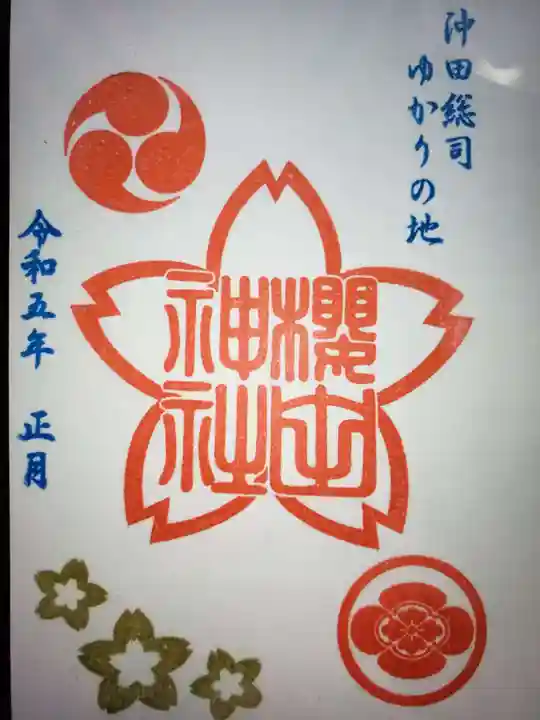 沖田総司
ゆかりの地
櫻田
神社
令和五年 正月